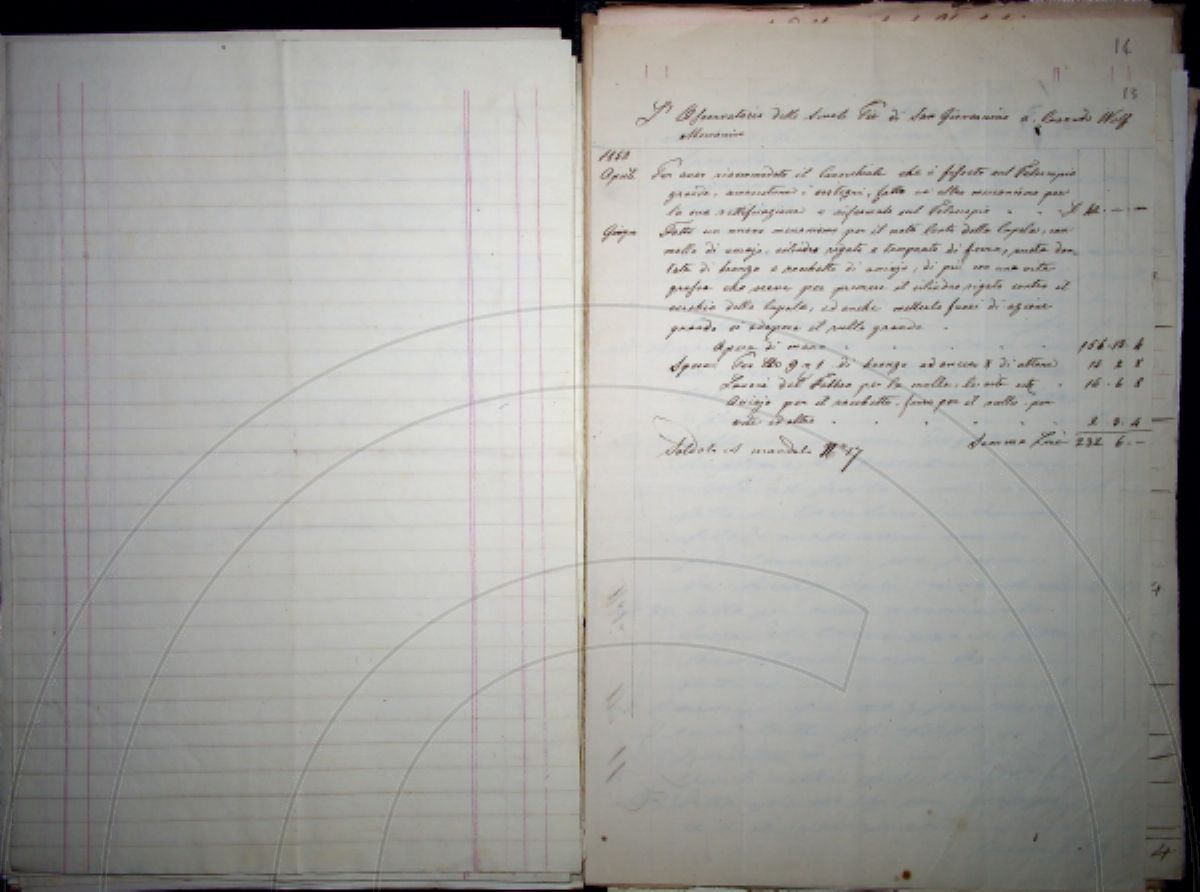 14
13
L'Osservatorio delle Scuole Pie di San Giovannino a Corrado Wolf
Meccanico
1850
Aprile Per aver riaccomodato il Cannochiale che è fissato sul Telescopio
grande, i sostegni, fatto un altro meccanismo per
la sua rettificazione e rifermato sul Telescopio . . L 42 . — —
Giugno Fatto un nuovo meccanismo per il moto lento della Cupola, con
molla di acciajo, cilindro rigato e temprato di ferro, ruota den-
tata di bronzo e rocchetto di acciajo, di più con una vite
grossa che serve per premere il cilindro rigato contro il
cerchio della Cupola, ed anche metterlo fuori di azione
quando si adopera il rullo grande .
Opera di mano . . . . . . 156 . 13 . 4
Spese: Per di bronzo ed oncie 8 di ottone 15 2 8
Lavori del Fabbro per la molla, la vite . 16 . 6 8
Acciajo per il rocchetto, ferro per il rullo, per
viti ed altro . . . . . . 2 . 3 . 4
Saldato col mandato N° 17 Somma Lire 232 6 . —
4